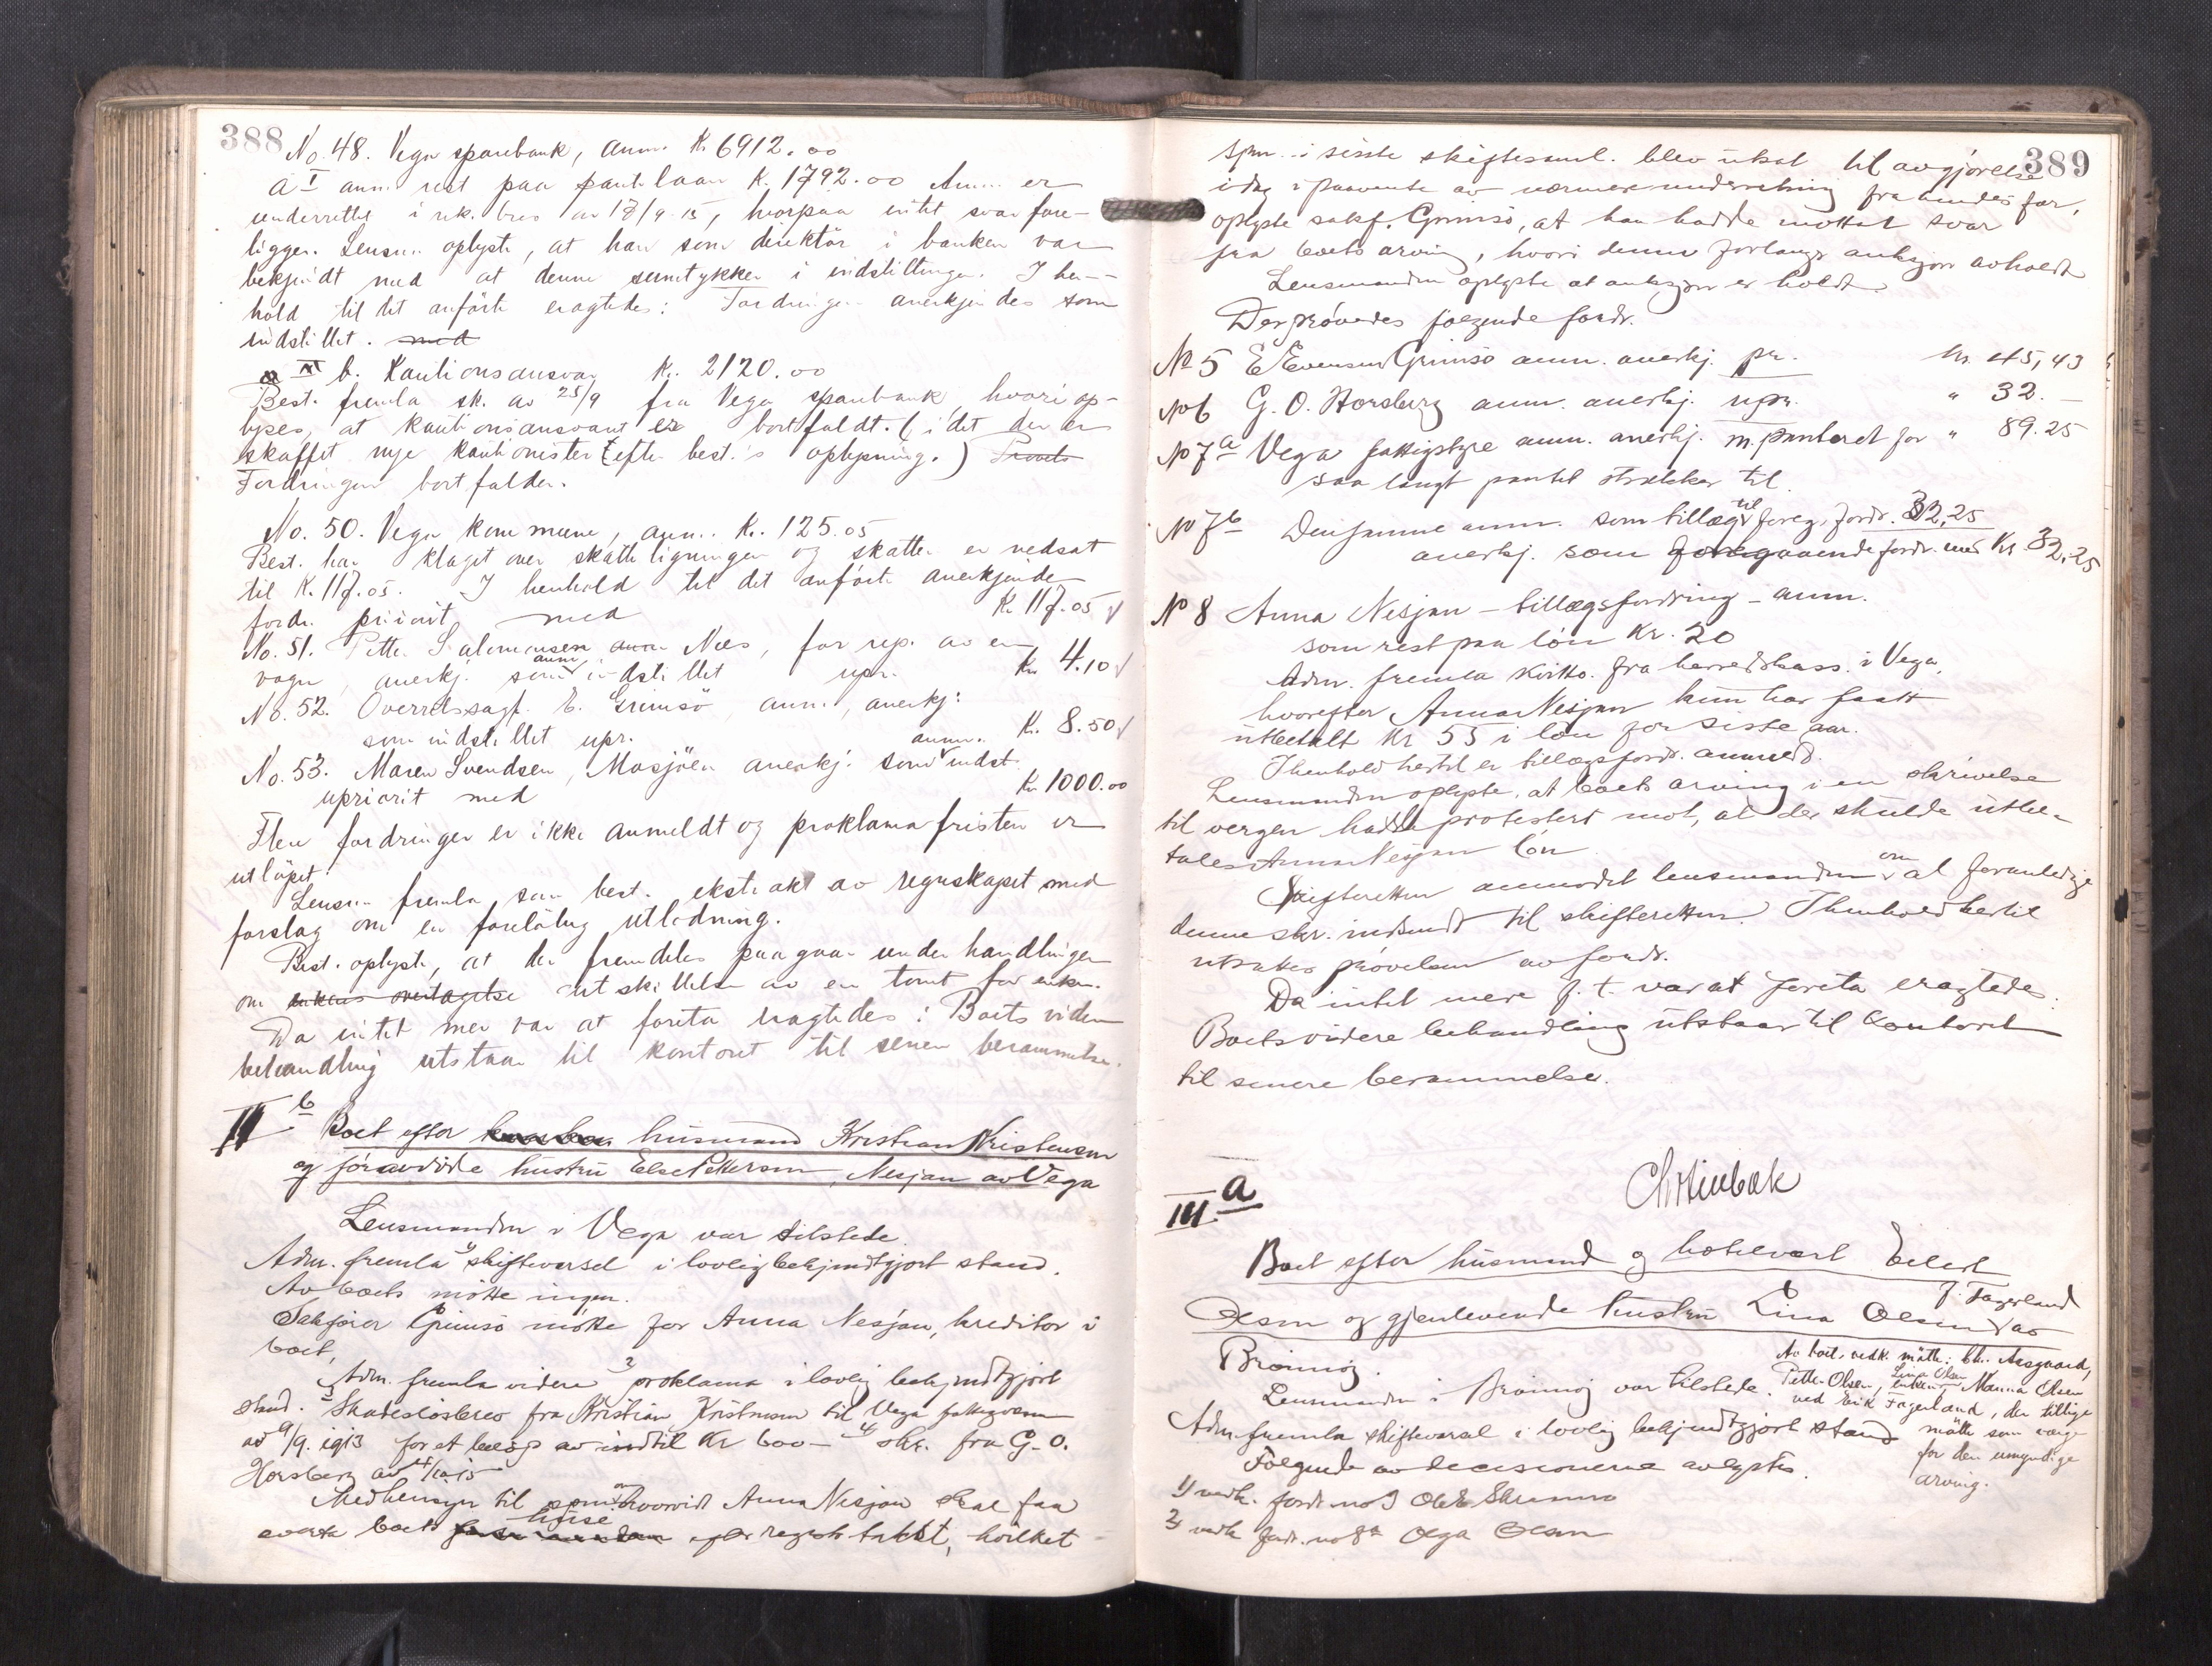 388
No. 48. Vega sparebank, anm. K. 6912.00
a I anm. rest paa pantelaan K. 1792.00 Anm. er
underrettet i rek. brev av 17/9 15, hvorpaa intet svar fore-
ligger. Lensm. oplyste, at han som direktör i banken var
bekjendt med at denne samtykker i indstillingen. I hen-
hold til det anförte eragtedes: Fordringen anerkjendes som
indstillet. med
b. Kautionsansvar K. 2120.00
Best. fremla sk. av 25/9 fra Vega sparebank hvori op-
lyses, at kautionsansvaret er bortfaldt. (idet der er
skaffet nye kautionister efter best.'s oplysning.)
Fordringen bortfalder.
No. 50. Vega kommune, anm. K. 125.05
Best. har klaget over skatteligningen og skatten er nedsat
til K. 117.05. I henhold til det anförte anerkjendes
fordr. priorit. med K. 117.05
No. 51. Petter Salomonsen Nes, for rep. av en
vogn, anerkj. som anm. indstillet upr. Kr. 4.10
No. 52. Overretssagf. E. Grimsö anm., anerkj:
som indstillet upr. K. 8.50
No. 53. Maren Svendsen, Mosjöen anerkj. som anm. indst.
upriorit med Kr. 1000.00
Flere fordringer er ikke anmeldt og proklamafristen er
utlöpet.
Lensm. fremla som best. ekstrakt av regnskapet med
forslag om en forelöbig utlodning.
Best. oplyste, at der fremdeles paagaar underhandlinger
om enkens overtagelse utskillelse av en tomt for enken.
Da intet mer var at foreta eragtedes: Boets videre
behandling utstaar til kontoret til senere berammelse.
II b Boet efter husmand Kristian Kristensen
og foravdöde hustru Else Pettersen, Nesjan av Vega
Lensmanden i Vega var tilstede.
Adm. fremla 1) skiftevarsel i lovlig bekjendtgjort stand.
Av boets mötte ingen.
Sakförer Grimsö mötte for Anna Nesjan, kreditor i
boet,
Adm. fremla videre 2) proklama i lovlig bekjendtgjort
stand. 3) Skadeslösbrev fra Kristian Kristensen til Vega fattigvæsen
av 9/9. 1913 for et belöp av indtil Kr 600 – 4) skr. fra G. O.
Horsberg av 4/10 15
Med hensyn til spm. om hvorvidt Anna Nesjan skal faa
overta boets huse efter registr. takst, hvilket
389
spm. i siste skiftesaml. blev utsat til avgjörelse
idag i paavente av nærmere underretning fra hendes far,
oplyste sakf. Grimsö, at han hadde mottat svar
fra boets arving, hvori denne forlanger auksjon avholdt
Lensmanden oplyste at auksjon er holdt.
Der prövedes fölgende fordr.
No 5 E Evensen Grimsö anm. anerkj. pr. Kr. 45,43
No 6 G. O. Horsberg anm. anerkj. upr. " 32.–
No 7 a Vega fattigstyre anm. anerkj. m. panteret for " 89.25
saa langt pantet strækker til.
No 7 b Densamme anm. som tillæg til foreg. fordr. 32,25
anerkj. som foregaaende fordr. med Kr 32,25
No 8 Anna Nesjan – tillægsfordring – anm.
som rest paa lön Kr. 20
Adm. fremla kvitto. fra herredskass. i Vega,
hvorefter Anna Nesjan kun har faatt
utbetalt Kr 55 i lön for siste aar.
I henhold hertil er tillægsfordr. anmeld.
Lensmanden oplyste, at boets arving i en skrivelse
til vergen hadde protestert mot, at der skulde utbe-
tales Anna Nesjan lön
Skifteretten anmodet lensmanden om at foranledige
denne skr. indsendt til skifteretten. I henhold hertil
utsattes prövelsen av fordr.
Da intet mere f. t. var at foreta eragtedes:
Boets videre behandling utstaar til kontoret
til senere berammelse.
III a
Boet efter husmand og hotelvert Edert
Olsen og gjenlevende hustru Lina Olsen f. Fagerland av
Brönnöy.
Lensmanden i Brönnöy var tilstede. Av boets vedk. mötte: Chr. Aasgaard,
Petter Olsen, enken Lina Olsen, Manna Olsen
ved Erik Fagerland, der tillige
mötte som verge
for den umyndige
arving.
Adm. fremla skiftevarsel i lovlig bekjendtgjort stand
Fölgende av decisionerne avlystes.
1) vedk. fordr. no 9 Ole E. Skrunes
2) vedk fordr. no 8a Olga Olsen